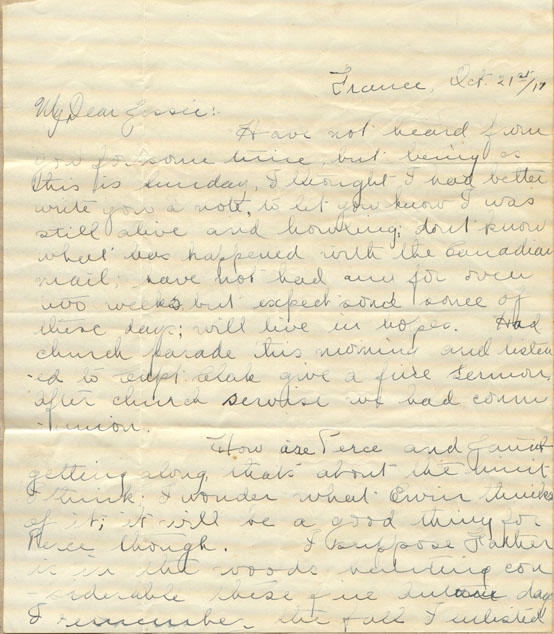 France, Oct. 21st/17
My Dear Jessie:
Have not heard from
you for some time, but being as
this is Sunday, I thought I had better
write you a note, to let you know I was
still alive and howling; dont know
what has happened with the Canadian
mail; have not had any for over
two weeks, but expect some of
these days; will live in hopes. Had
church parade this morning and listen
-ed to Capt. give a fine sermon,
after church servise we had comm
-union.
How are Perce and
getting along, thats about the limit
I think; I wonder what Erwin thinks
of it; it will be a good thing for
Perce though. I suppose Father
is in the woods hunting con
-siderable these fine days
I remember the fall I enlisted